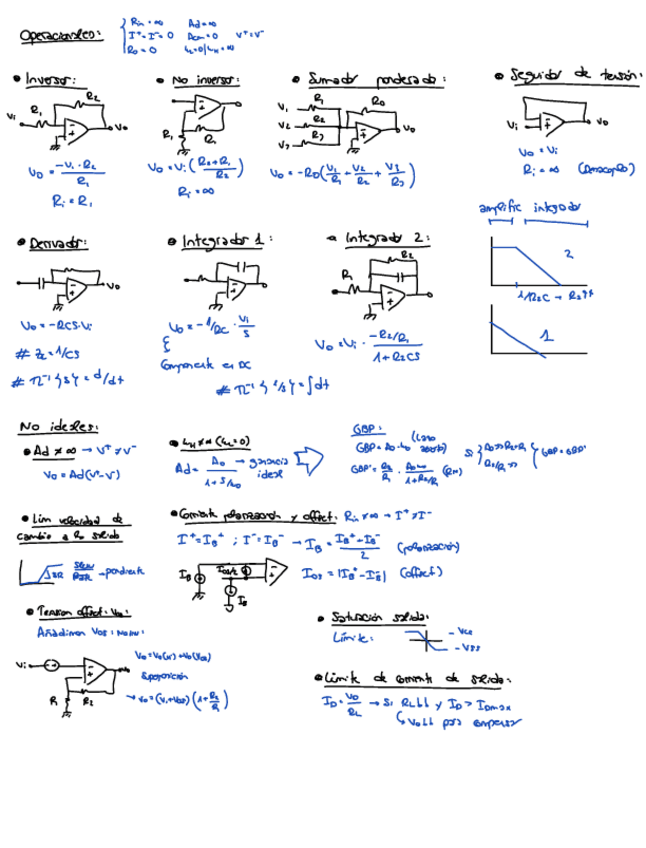 Operacionales:
Rin = ∞ Ad = ∞
I⁺ = I⁻ = 0 Acm = 0 V⁺ = V⁻
Ro = 0
• Inversor:
R2
R1
Vi
Vo
Vo = -Vi · R2 / R1
Ri = R1
• No inversor:
R1
Vo = Vi (R2+R1 / R2)
Ri = ∞
• Sumador ponderado:
V1 R1 Ro
V2 R2
Vo
V3 R3
Vo = -Ro (V1/R1 + V2/R2 + V3/R3)
• Seguidor de tensión:
Vi
Vo
Vo = Vi
Ri = ∞ (Desacoplo)
amplific integrador
2
1/R2C
1
• Derivador:
Vo
Vo = -RCS·Vi
# Zc = 1/CS
# 𝓛⁻¹{s} = d/dt
• Integrador 1:
Vo = -1/RC · Vi/S
Componente en DC
# 𝓛⁻¹{1/s} = ∫dt
• Integrador 2:
R2
R1
Vo = Vi · -R2/R1 / 1+R2CS
No ideales:
• Ad ≠ ∞ → V⁺ ≠ V⁻
Vo = Ad(V⁺-V⁻)
• ωH ≠ ∞ (ωL=0)
Ad = Ao / 1+S/ωo → ganancia ideal
GBP:
(Lazo abierto)
GBP = Ao·ωo
• Lim velocidad de
cambio a la salida
SR Slew Rate → pendiente
• Corriente polarización y offset: Rin ≠ ∞ → I⁺ ≠ I⁻
I⁺ = IB⁺ ; I⁻ = IB⁻ → IB = IB⁺+IB⁻ / 2 (polarización)
IB
Ios/2
IB
Ios = |IB⁺-IB⁻| (offset)
• Tension offset: Vos:
Añadimos Vos
Vi
R1 R2
Superposición
→ Vo = (Vi+Vos)(1+R2/R1)
• Saturación salida:
Límite:
- Vcc
- Vss
• Límite de corriente de salida:
Io = Vo/RL → Si RL↓↓ y Io > Iomax
↳ Vo↓↓ para compensar